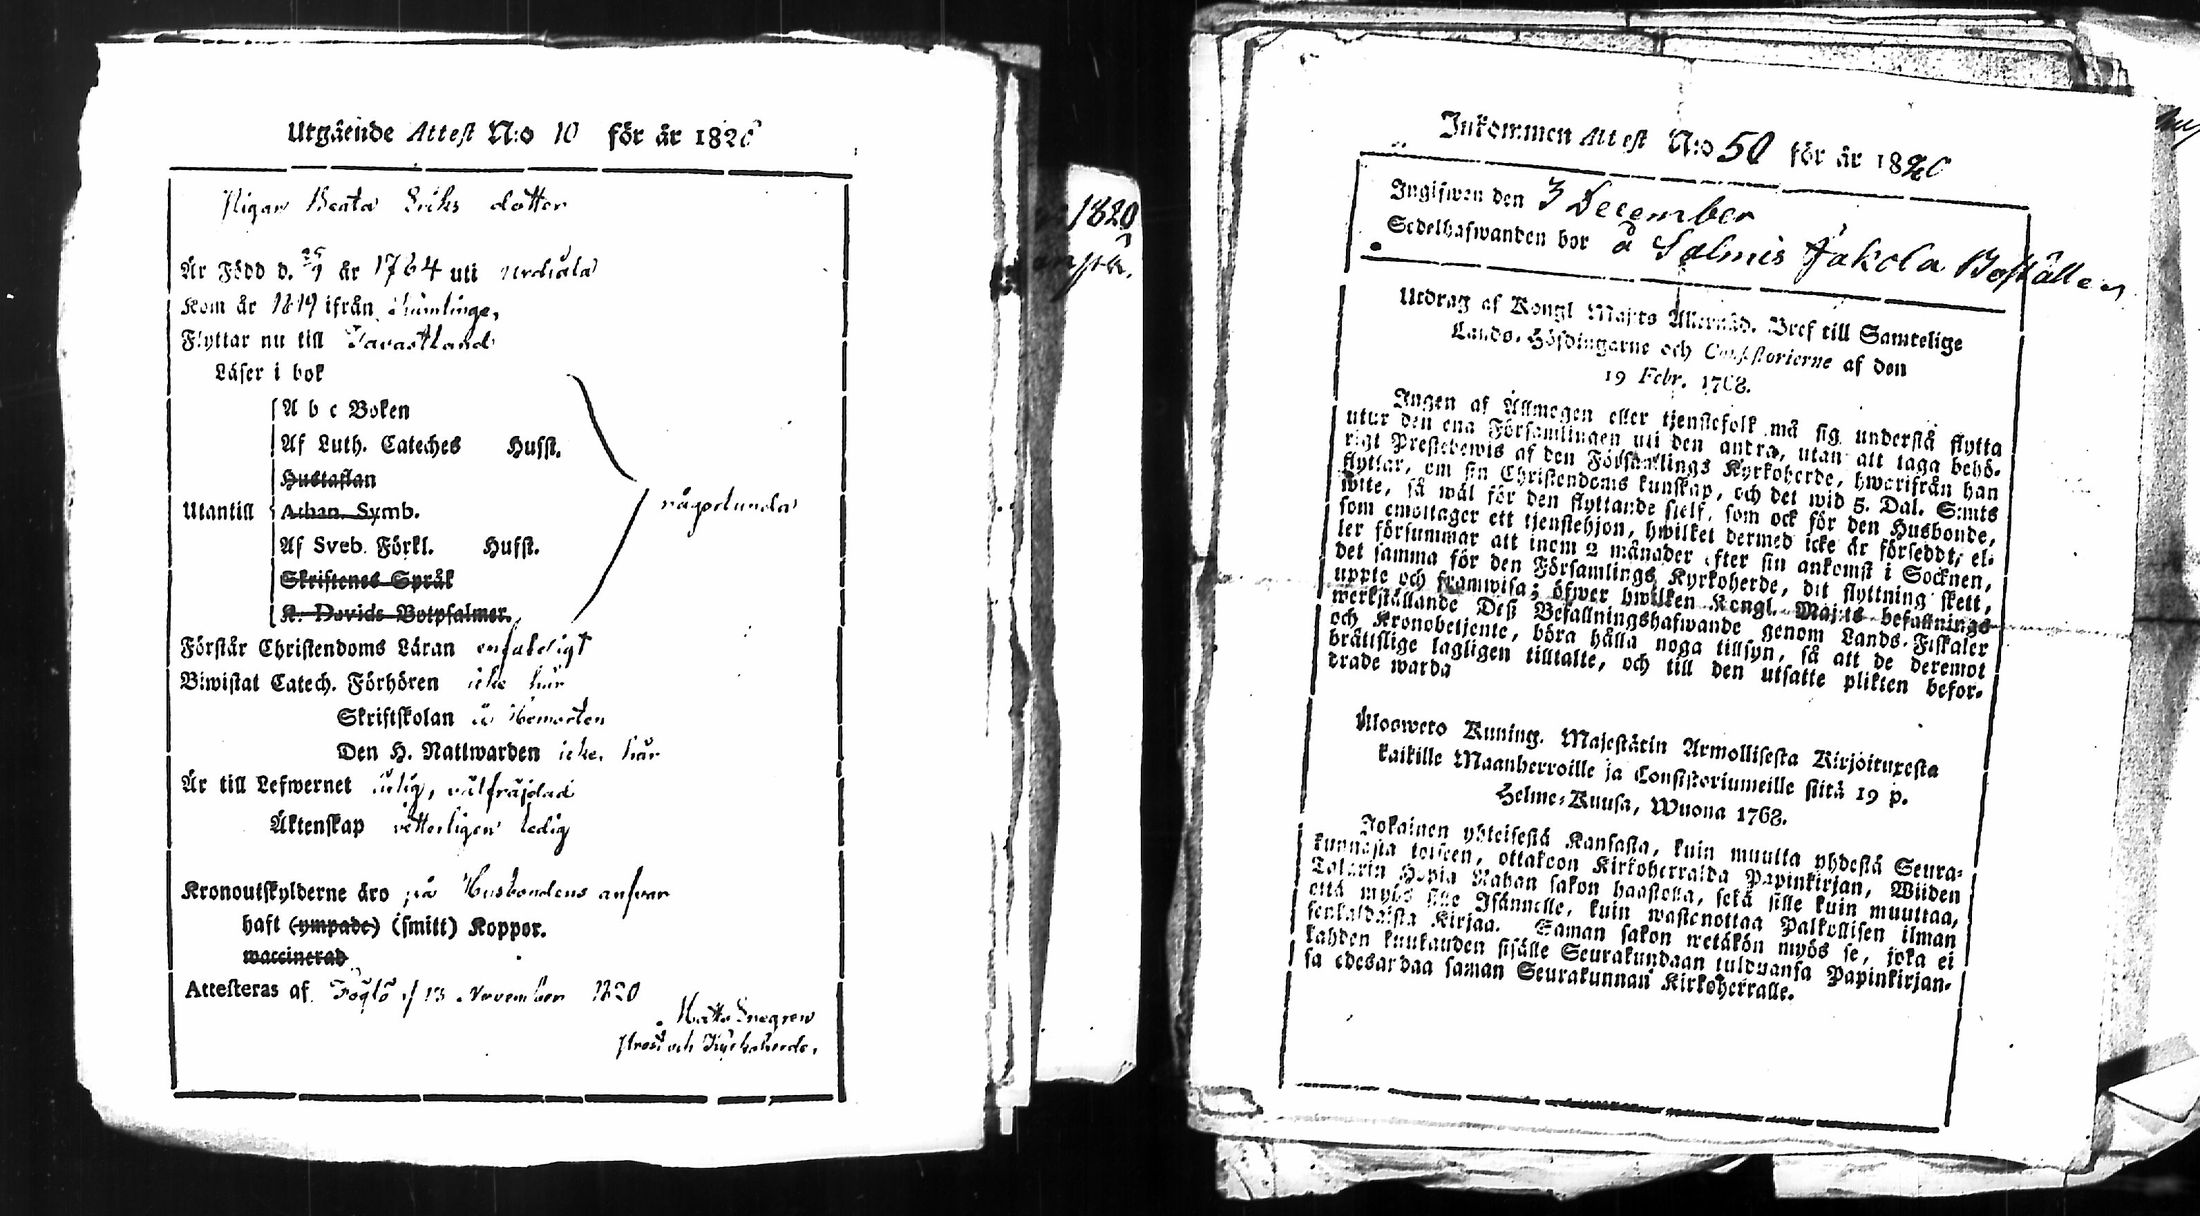 Utgående Attest N:o 10 för år 1820
Pigan Beata Eriks dotter
Är Född d. 25/9 år 1764 uti Urdiala
Kom år 1819 ifrån Kumlinge,
Flyttar nu till Tavastland
Läser i bok
A b c Boken
Af Luth. Cateches Husst.
Hustaflan
Utantill Athan. Symb.
någorlunda
Af Sveb. Förkl. Husst.
Skriftenes Språk
K. Davids Botpsalmer.
Förstår Christendoms Läran enfaldigt
Biwistat Catech. Förhören icke här
Skriftskolan å Hemorten
Den H. Nattwarden icke här
Är till Lefwernet ärlig, välfräjdad
Äktenskap vetterligen ledig
Kronoutskylderne äro på Husbondens ansvar
haft (ympade) (smitt) Koppor.
waccinerad
Attesteras af Föglö d 13 November 1820
Prost och Kyrkoherde.
1820
Inkommen Attest N:o 50 för år 1820
Ingifwen den 3 December
Sedelhafwanden bor å Salmis Jakola Boställe
Utdrag af Kongl Maj:ts Allernåd. Bref till Samtelige
Lands-Höfdingarne och Consistorierne af den
19 Febr. 1768.
Ingen af Allmogen eller tjenstefolk må sig understå flytta
utur den ena Församlingen uti den andra, utan att taga behö-
rigt Prestebewis af den Församlings Kyrkoherde, hwarifrån han
flyttar, om sin Christendoms kunskap, och det wid 5. Dal. S:mts
wite, så wäl för den flyttande sjelf, som ock för den Husbonde,
som emottager ett tjenstehjon, hwilket dermed icke är försedt, el-
ler försummar att inom 2 månader efter sin ankomst i Socknen,
det samma för den Församlings Kyrkoherde, dit flyttning skett,
uppte och framwisa; öfwer hwilken Kongl. Maj:ts befallnings
werkställande Desz Befallningshafwande genom Lands-Fiskaler
och Kronobetjente, böra hålla noga tillsyn, så att de deremot
brättslige lagligen tilltalte, och till den utsatte plikten befor-
drade warda
Ulosweto Kuning. Majestätin Armollisesta Kirjoituxesta
kaikille Maanherroille ja Consistoriumeille siitä 19 p.
Helme-Kuusa, Wuona 1768.
Jokainen yhteisestä Kansasta, kuin muutta yhdestä Seura-
kunnasta toiseen, ottakoon Kirkoherralda Papinkirjan, Wiiden
Talarin Hopia Rahan sakon haastolla, sekä sille kuin muuttaa,
että myös sille Isännelle, kuin wastenottaa Palkollisen ilman
senkaldaista Kirjaa. Saman sakon wetäkön myös se, joka ei
kahden kuukauden sisälle Seurakundaan tulduansa Papinkirjan-
sa edesandaa saman Seurakunnan Kirkoherralle.